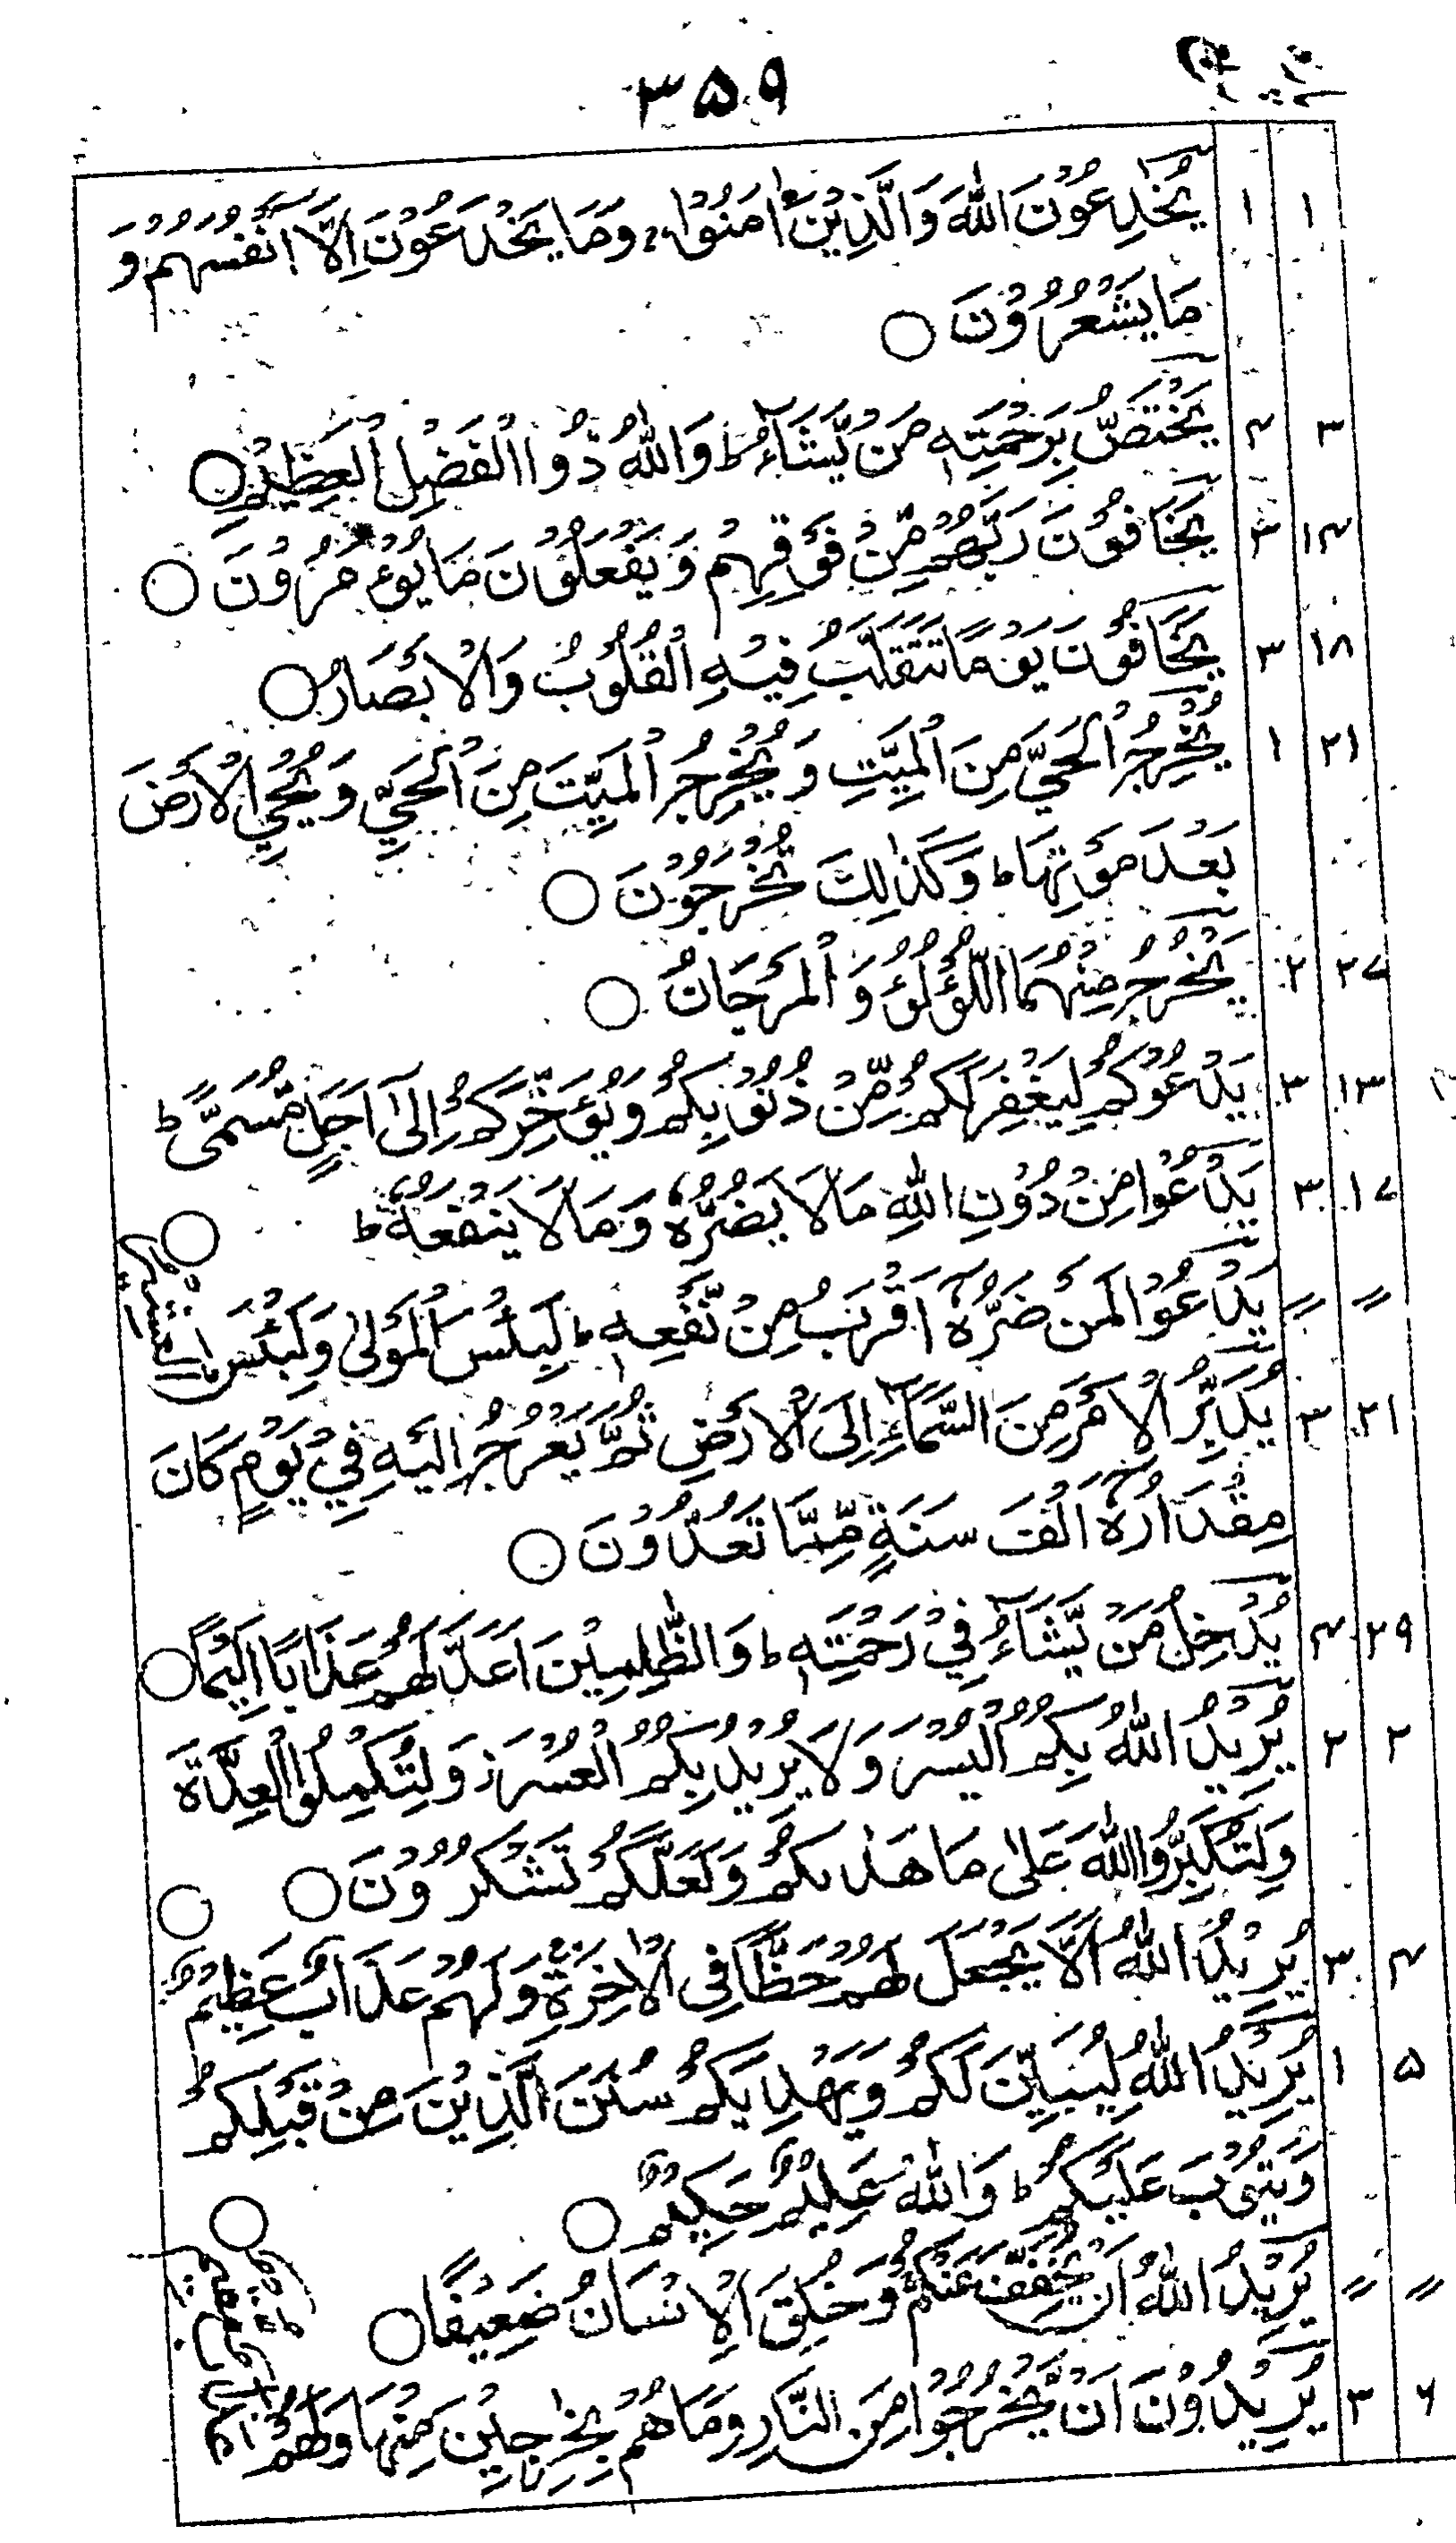 ۳۵۹
۱ ۱ يُخٰدِعُوْنَ اللّٰهَ وَالَّذِيْنَ اٰمَنُوْا ۚ وَمَا يَخْدَعُوْنَ اِلَّا اَنْفُسَهُمْ وَ
مَا يَشْعُرُوْنَ ○
۳ ۴ يَخْتَصُّ بِرَحْمَتِهٖ مَنْ يَّشَآءُ ط وَاللّٰهُ ذُوا الْفَضْلِ الْعَظِيْمِ ○
۱۴ ۳ يَخَافُوْنَ رَبَّهُمْ مِّنْ فَوْقِهِمْ وَيَفْعَلُوْنَ مَا يُوْءمَرُوْنَ ○
۱۸ ۳ يَخَافُوْنَ يَوْمًا تَتَقَلَّبُ فِيْهِ الْقُلُوْبُ وَالْاَبْصَارُ ○
۲۱ ۱ يُخْرِجُ الْحَيَّ مِنَ الْمَيِّتِ وَيُخْرِجُ الْمَيِّتَ مِنَ الْحَيِّ وَيُحْيِ الْاَرْضَ
بَعْدَ مَوْتِهَا ط وَكَذٰلِكَ تُخْرَجُوْنَ ○
۲۷ ۲ يَخْرُجُ مِنْهُمَا اللُّؤْلُؤُ وَالْمَرْجَانُ ○
۱۳ ۳ يَدْعُوْكُمْ لِيَغْفِرَ لَكُمْ مِّنْ ذُنُوْبِكُمْ وَيُؤَخِّرَكُمْ اِلٰٓى اَجَلٍ مُّسَمًّى ط
۱۷ ۳ يَدْعُوْا مِنْ دُوْنِ اللّٰهِ مَا لَا يَضُرُّهٗ وَمَا لَا يَنْفَعُهٗ ط ○
〃 〃 يَدْعُوْا لَمَنْ ضَرُّهٗٓ اَقْرَبُ مِنْ نَّفْعِهٖ ط لَبِئْسَ الْمَوْلٰى وَلَبِئْسَ الْعَشِيْرُ
۲۱ ۳ يُدَبِّرُ الْاَمْرَ مِنَ السَّمَآءِ اِلَى الْاَرْضِ ثُمَّ يَعْرُجُ اِلَيْهِ فِيْ يَوْمٍ كَانَ
مِقْدَارُهٗٓ اَلْفَ سَنَةٍ مِّمَّا تَعُدُّوْنَ ○
۲۹ ۴ يُدْخِلُ مَنْ يَّشَآءُ فِيْ رَحْمَتِهٖ ط وَالظّٰلِمِيْنَ اَعَدَّ لَهُمْ عَذَابًا اَلِيْمًا ○
۲ ۲ يُرِيْدُ اللّٰهُ بِكُمُ الْيُسْرَ وَلَا يُرِيْدُ بِكُمُ الْعُسْرَ ز وَلِتُكْمِلُوا الْعِدَّةَ
وَلِتُكَبِّرُوا اللّٰهَ عَلٰى مَا هَدٰىكُمْ وَلَعَلَّكُمْ تَشْكُرُوْنَ ○ ○
۴ ۳ يُرِيْدُ اللّٰهُ اَلَّا يَجْعَلَ لَهُمْ حَظًّا فِى الْاٰخِرَةِ ۚ وَلَهُمْ عَذَابٌ عَظِيْمٌ
۵ ۱ يُرِيْدُ اللّٰهُ لِيُبَيِّنَ لَكُمْ وَيَهْدِيَكُمْ سُنَنَ الَّذِيْنَ مِنْ قَبْلِكُمْ
وَيَتُوْبَ عَلَيْكُمْ ط وَاللّٰهُ عَلِيْمٌ حَكِيْمٌ ○ ○
〃 〃 يُرِيْدُ اللّٰهُ اَنْ يُّخَفِّفَ عَنْكُمْ وَخُلِقَ الْاِنْسَانُ ضَعِيْفًا ○
۶ ۳ يُرِيْدُوْنَ اَنْ يَّخْرُجُوْا مِنَ النَّارِ وَمَا هُمْ بِخٰرِجِيْنَ مِنْهَا وَلَهُمْ عَذَابٌ مُّقِيْمٌ